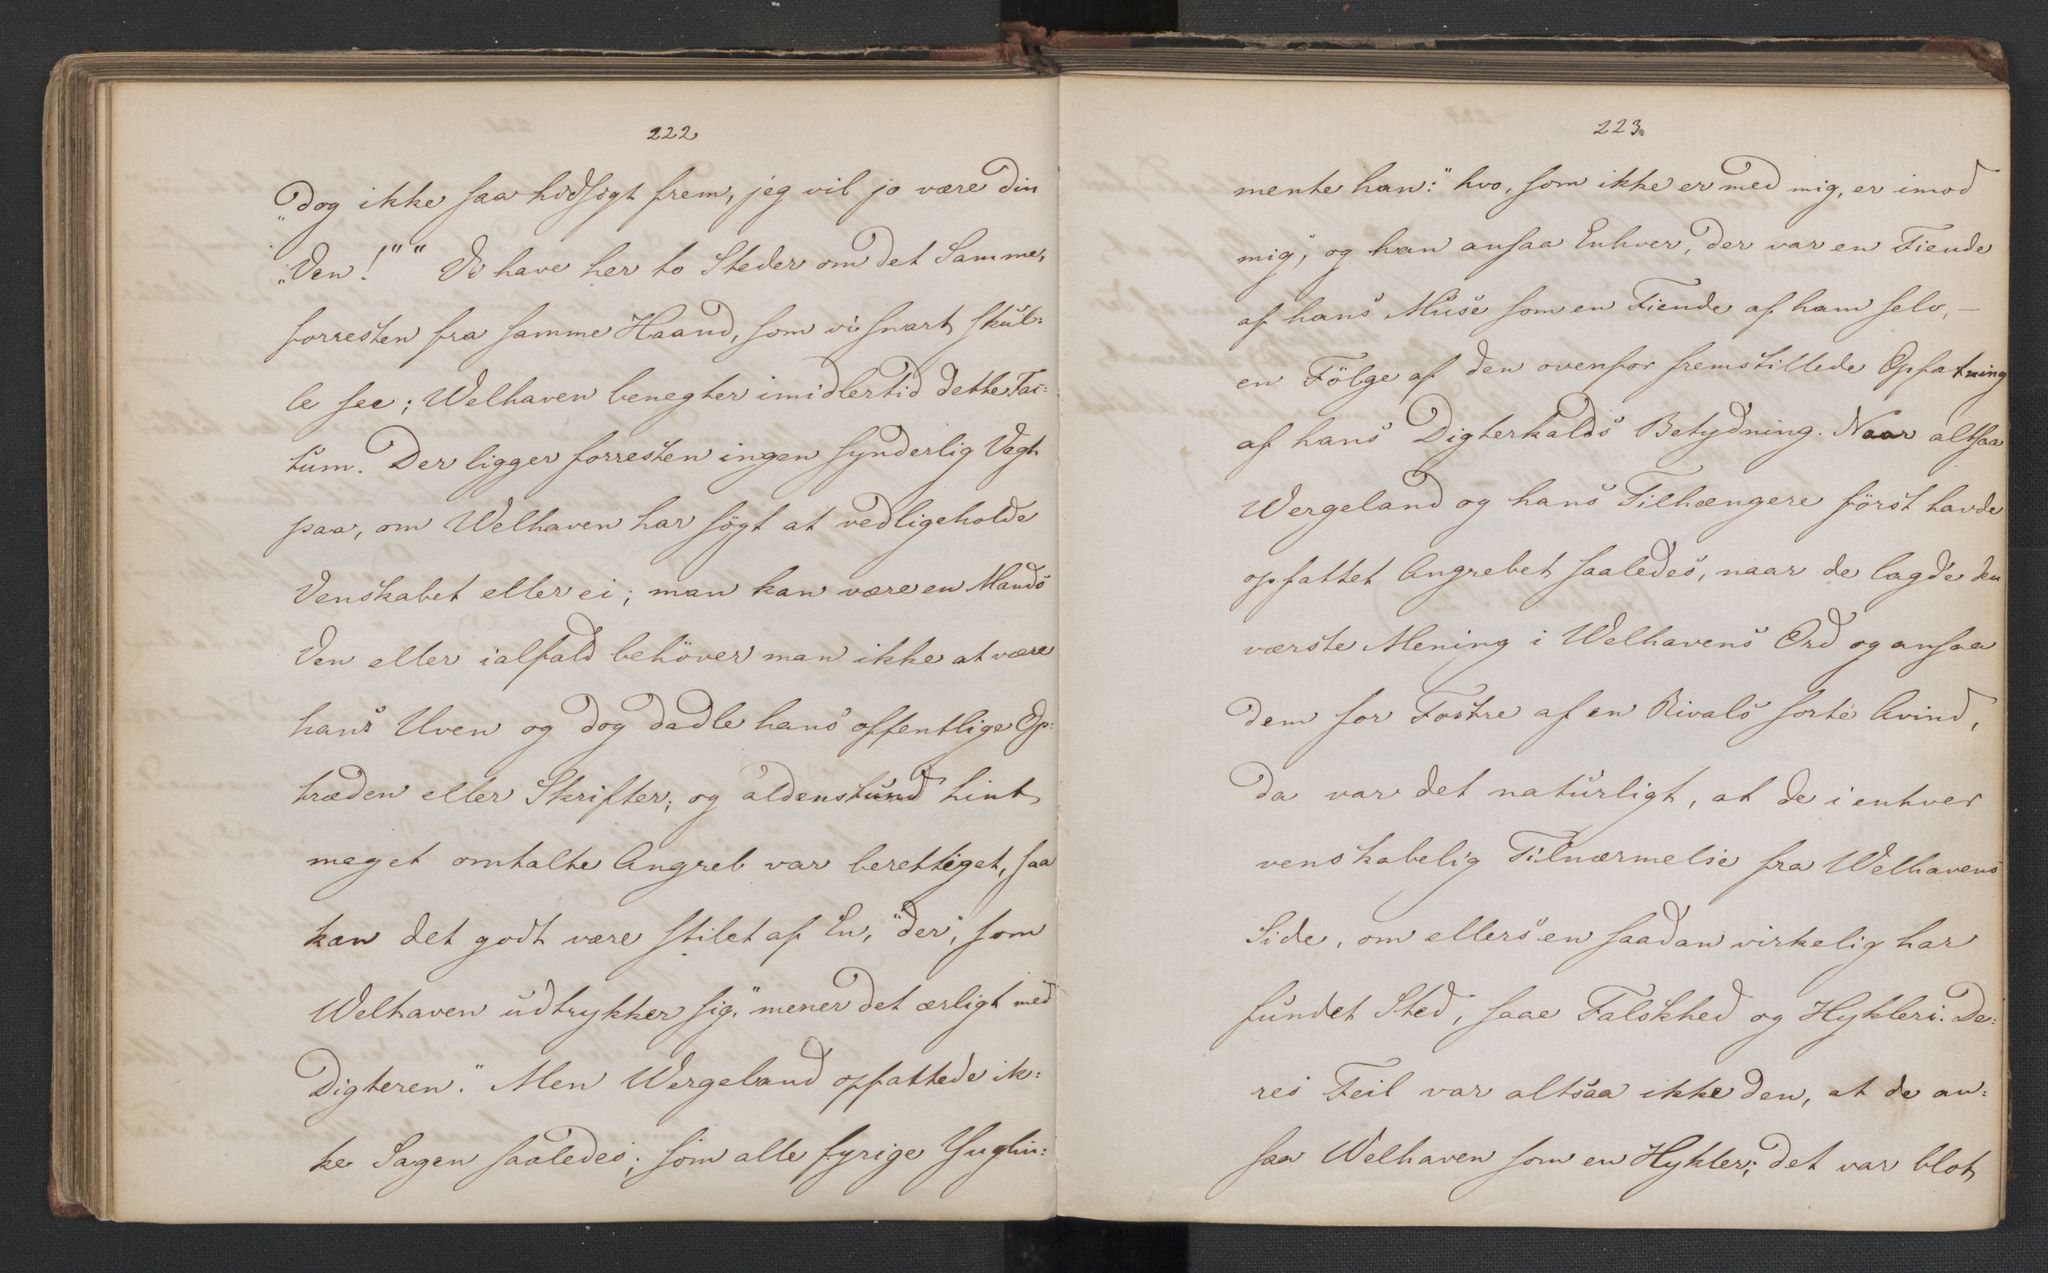 222.
"dog ikke saa hidsigt frem, jeg vil jo være din
"Ven!"" Vi have her to Steder om det Samme,
forresten fra samme Haand, som vi snart skul-
le see; Welhaven benegter imidlertid dette Fac-
tum. Der ligger forresten ingen synderlig Vægt
paa, om Welhaven har sögt at vedligeholde
Venskabet eller ei; man kan være en Mands
Ven eller ialfald behöver man ikke at være
hans Uven og dog dadle hans offentlige Op-
træden eller Skrifter; og aldenstund hint
meget omtalte Angreb var berettiget, saa
kan det godt være stilet af En, "der", som
Welhaven udtrykker sig, "mener det ærligt med
Digteren." Men Wergeland opfattede ik-
ke Sagen saaledes; som alle fyrige Ynglin-
223.
mente han: "hvo, som ikke er med mig, er imod
mig", og han ansaa Enhver, der var en Fiende
af hans Muse som en Fiende af ham selv, —
en Fölge af den ovenfor fremstillede Opfatning
af hans Digterkalds Betydning. Naar altsaa
Wergeland og hans Tilhængere först havde
opfattet Angrebet saaledes, naar de lagde den
værste Mening i Welhavens Ord og ansaa
dem for Fostre af en Rivals sorte Avind,
da var det naturligt, at de i enhver
venskabelig Tilnærmelse fra Welhavens
Side, om ellers en saadan virkelig har
fundet Sted, saae Falskhed og Hykleri. De-
res Feil var altsaa ikke den, at de an-
saa Welhaven som en Hykler; det var blot